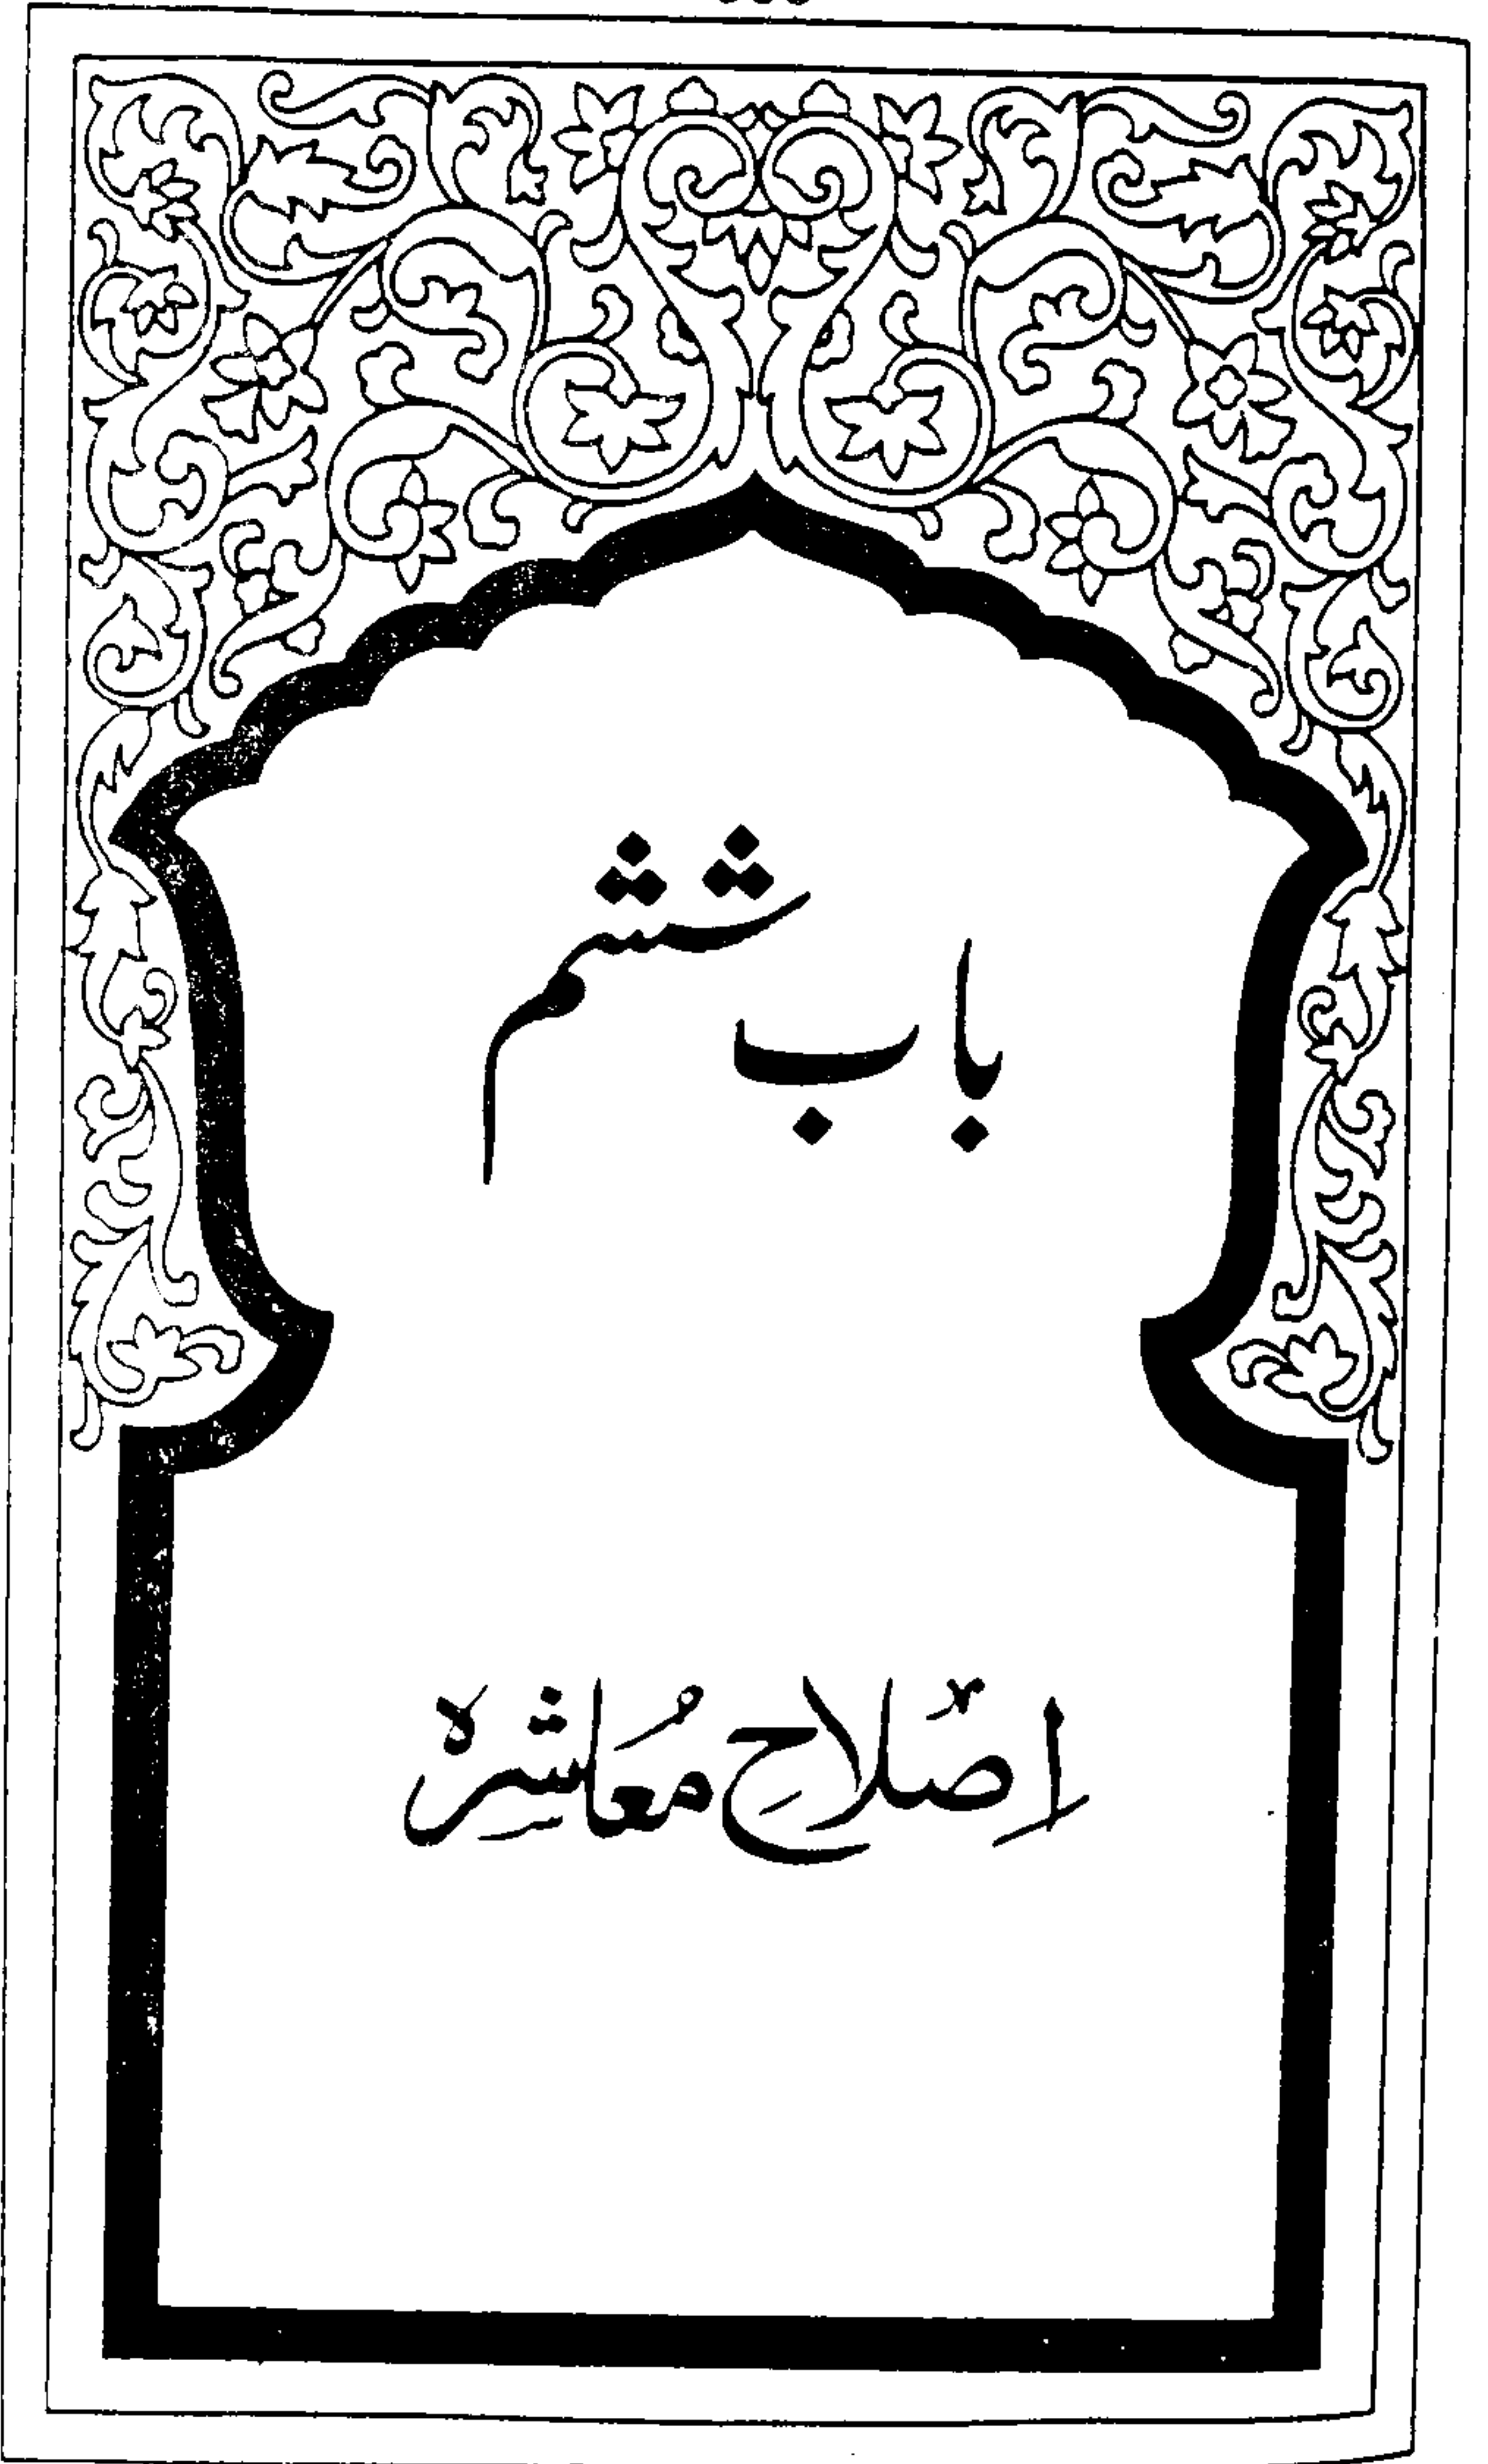 باب ششم
اِصْلَاحِ مُعَاشِرَہ